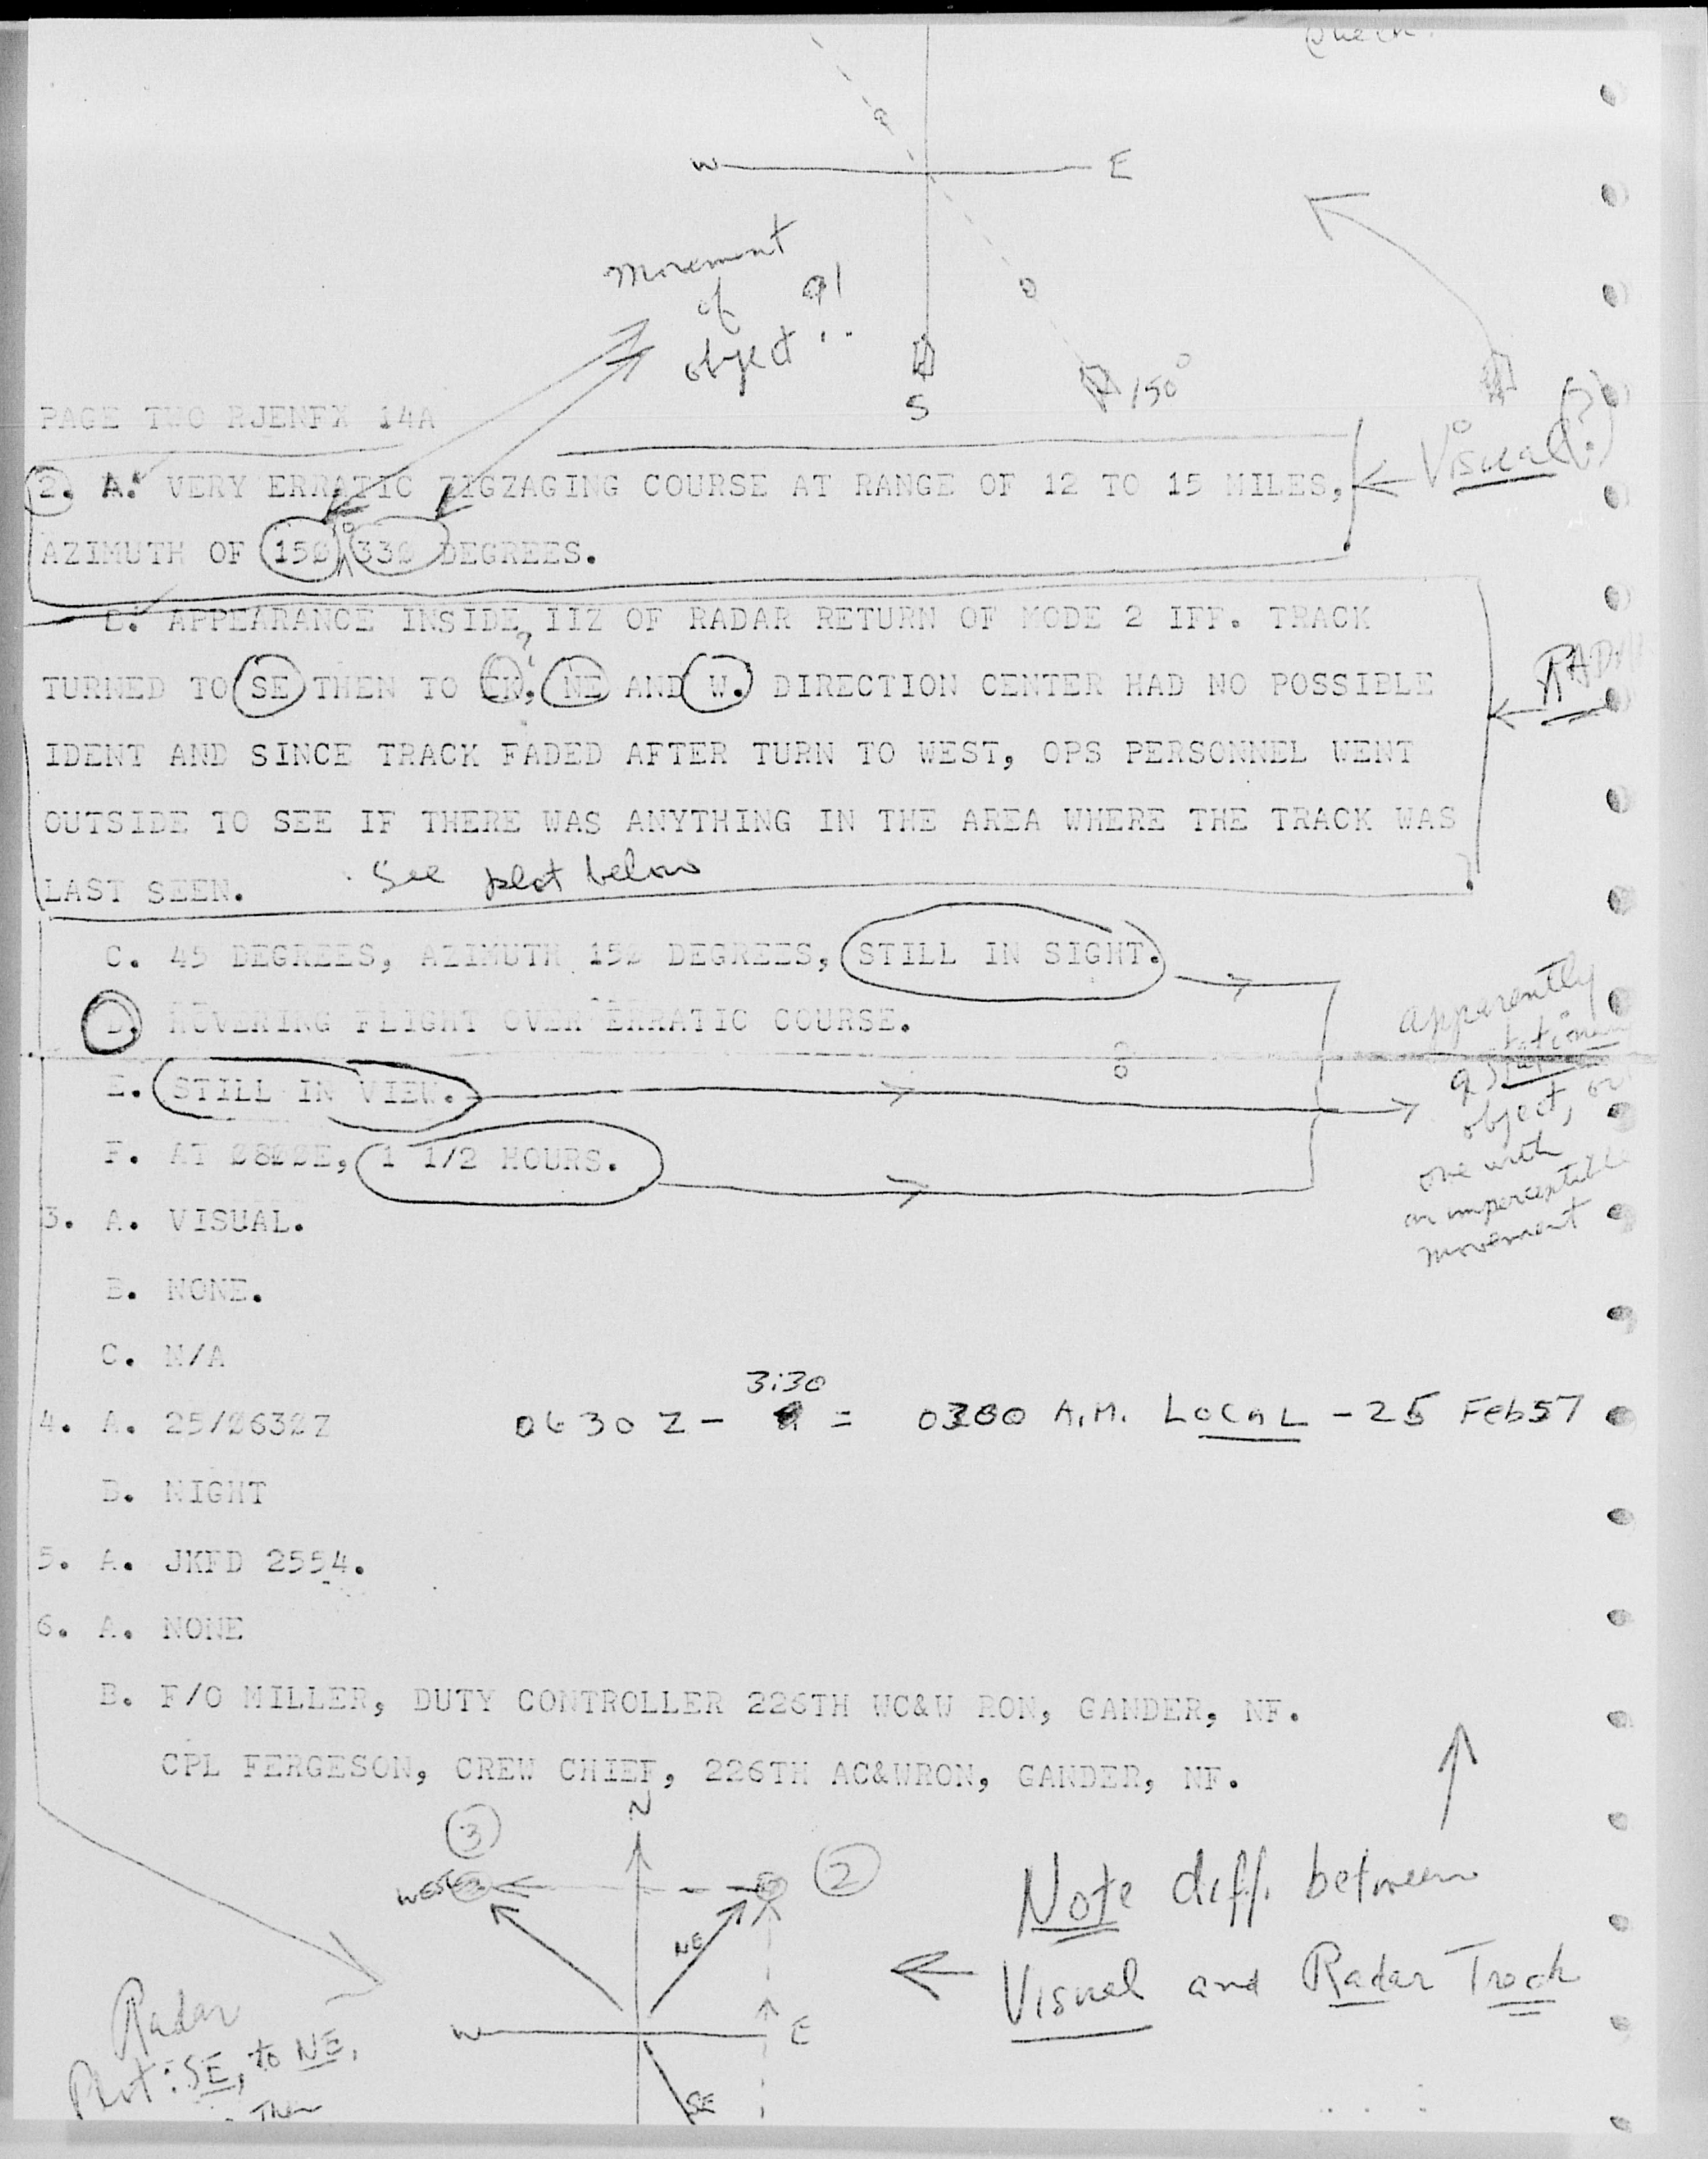 W E
Movement
of ?!
object
S 150°
PAGE TWO RJENFX 14A
Visual (?)
2. A. VERY ERRATIC ZIGZAGING COURSE AT RANGE OF 12 TO 15 MILES,
AZIMUTH OF 150° 330 DEGREES.
B. APPEARANCE INSIDE IIZ OF RADAR RETURN OF MODE 2 IFF. TRACK
?
TURNED TO SE THEN TO EN, NE AND W. DIRECTION CENTER HAD NO POSSIBLE
RADAR
IDENT AND SINCE TRACK FADED AFTER TURN TO WEST, OPS PERSONNEL WENT
OUTSIDE TO SEE IF THERE WAS ANYTHING IN THE AREA WHERE THE TRACK WAS
LAST SEEN. See plot below
C. 45 DEGREES, AZIMUTH 150 DEGREES, STILL IN SIGHT.
D. HOVERING FLIGHT OVER ERRATIC COURSE.
E. STILL IN VIEW.
F. AT 0800E, 1 1/2 HOURS.
apparently
a stationary
object, or
one with
an imperceptible
movement
3. A. VISUAL.
B. NONE.
C. N/A
3:30
4. A. 25/0630Z 0630 Z - = 0300 A.M. LOCAL - 25 Feb 57
B. NIGHT
5. A. JKFD 2554.
6. A. NONE
B. F/O MILLER, DUTY CONTROLLER 226TH WC&W RON, GANDER, NF.
CPL FERGESON, CREW CHIEF, 226TH AC&WRON, GANDER, NF.
N
3
West 2
NE
W E
SE
Note diff. between
Visual and Radar Track
Radar
Plot: SE, to NE,
Then